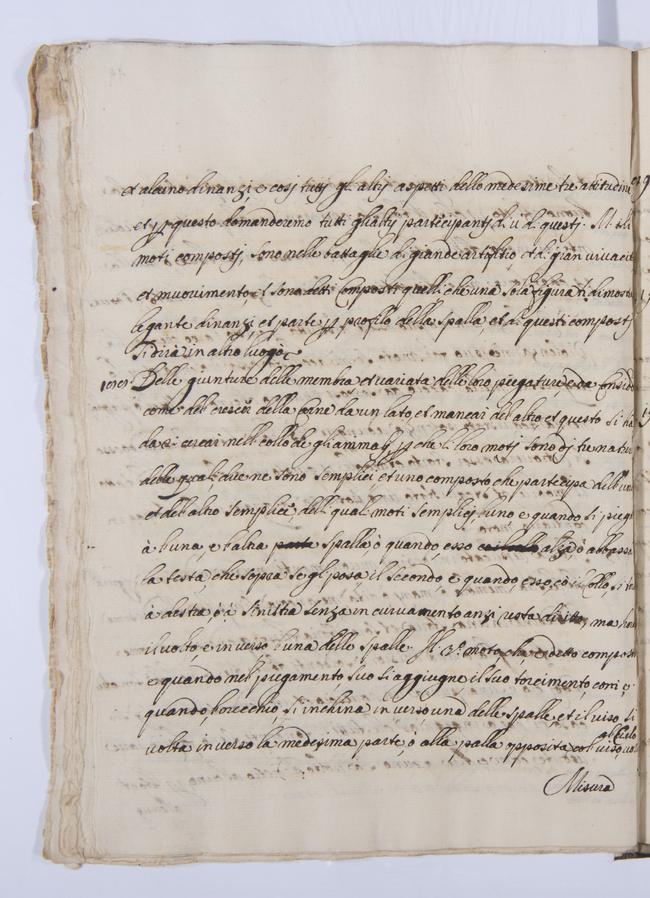 et alcino dinanzi, e cosi tuttj gl'altrj aspetti delle medesime tre attitudine
et questo domanderemo tutti gl'altrj participantj di v d. questj. Molti
moti compostj, sono nelle battaglie di grande artifitio et di gran vivacità
et muovimento, et sono detti composti quelli, che una sola figura ti dimostra
le gambe dinanzi et parte profilo della spalla, et di questi compostj
si dirà in altro luogo
Delle giunture delle membra et variatà delle loro piegature, è da consid
come del crescer della carne da un lato et mancar del altro et questo si ha
da ricercar nell collo de gl'iammalj, che li loro motj sono di tre nature
delle quali due ne sono semplici et uno composto che partecipa dell' uno
et del altro semplice, delli quali moti semplicj, uno e quando si piega
à l'una, e l'altra parte spalla ò quando, esso alza, ò abbassa
la testa, che sopra se gli posa, il secondo e quando, esso, collo si to
à destra, ò à sinistra senza incurvamento anzi resta diritto, ma ha
il volto, e in verso l'una delle spalle. Il 3º moto, ch'è detto composto
e quando nel piegamento suo si aggiugne il suo torcimento come,
quando, l'orecchio, si inchina in verso una delle spalle, et il viso, si
volta in verso la medesima parte, ò alla spalla opposita col viso,
Misura